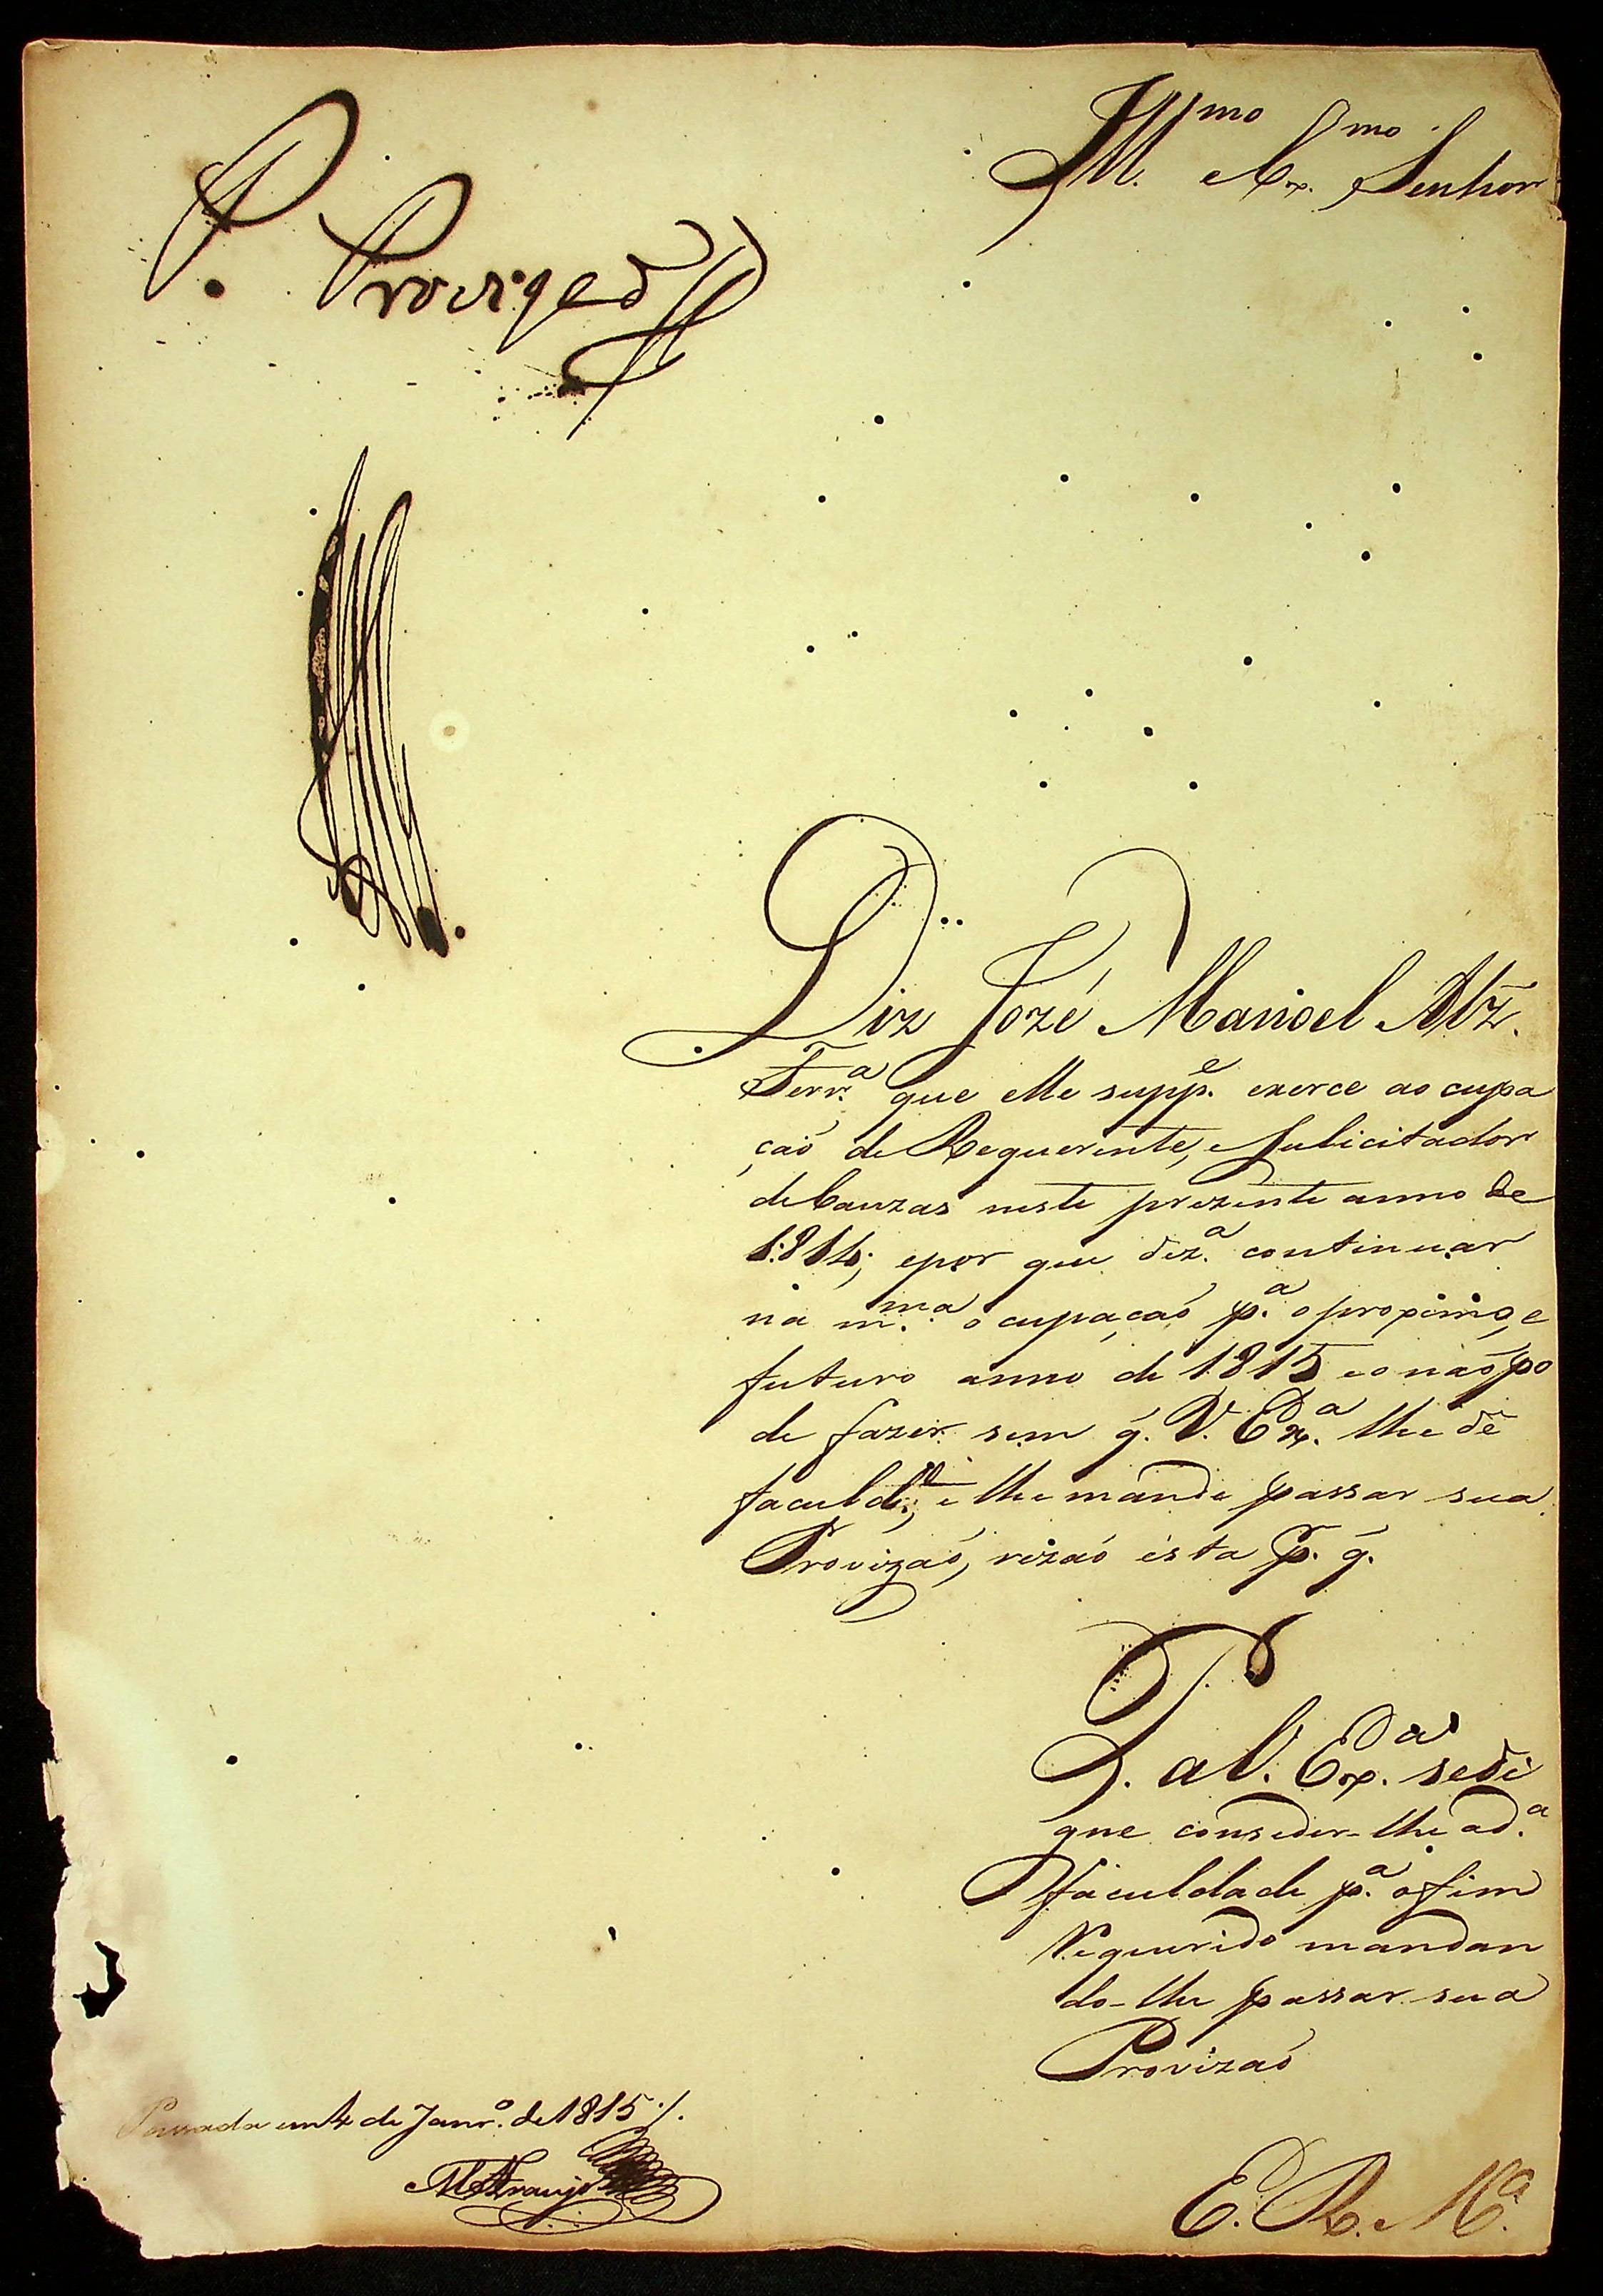 Ill.mo e Ex.mo Senhor
P. Provizaõ
Diz Jozé Manoel Alz̃.
Ferr.a que elle supp.e exerce ao cupa
çaõ de Requerente, e Sulicitador
de Cauzas neste prezente anno de
1814; epor que dez.a continuar
na m.ma ocupaçaõ p.a o proximo, e
futuro anno de 1815 eo naõ po
de fazer sem q̃. V. Ex.a lhe dê
faculd.e, e lhe mande passar sua
Provizaõ, rezaõ ésta p. q̃.
P. a V. Ex.a sedi
gne conseder-lhe a d.a
faculdade p.a o fim
Requerido mandan
do-lhe passar sua
Provizaõ
E. R. M.ce
Passada em 4 de Janr.o de 1815 /.
M Araujo